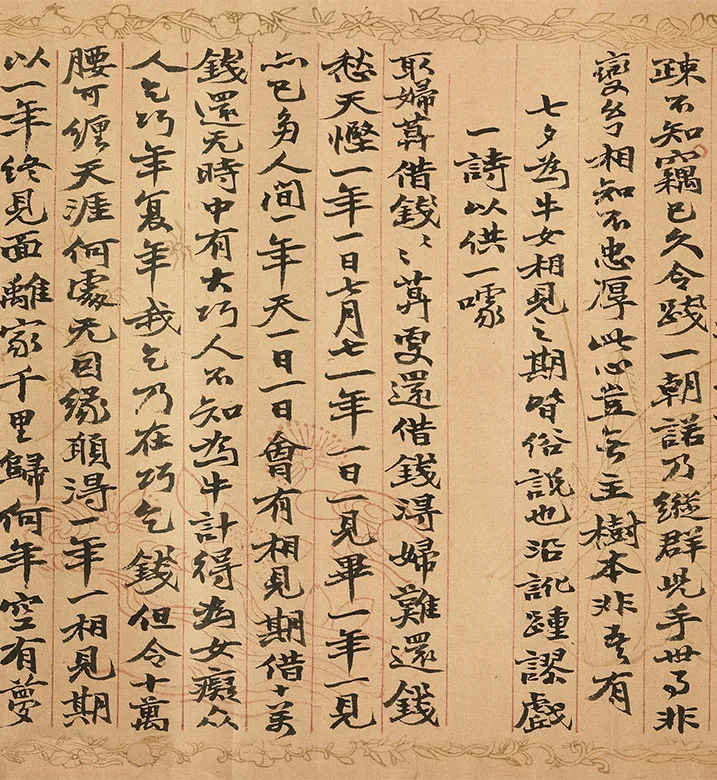 疎不知竊已久令踐一朝諾乃縱群児手世事非
變幻相知不忠厚此心豈無主樹本非吾有
七夕為牛女相見之期皆俗說也沿訛踵謬戲
一詩以供一噱
取婦筭借錢〻筭要還借錢得婦難還錢
愁天慳一年一日七月七一年一日一見畢一年一見
亦已多人間一年天一日一日會有相見期借十万
錢還无時中有大巧人不知為牛計得為女癡众
人乞巧年復年我乞乃在巧乞錢但令十萬
腰可纏天涯何處无因緣願得一年一相見期
以一年終見面離家千里歸何年空有夢